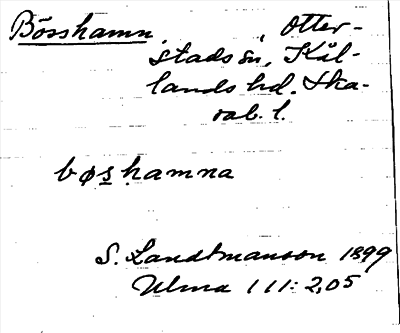 Börshamn, , Otter-
stads sn, Kål-
lands hd. Ska-
rab. l.
bøs̲hamna
S. Landtmanson 1899
Ulma 111: 2,05